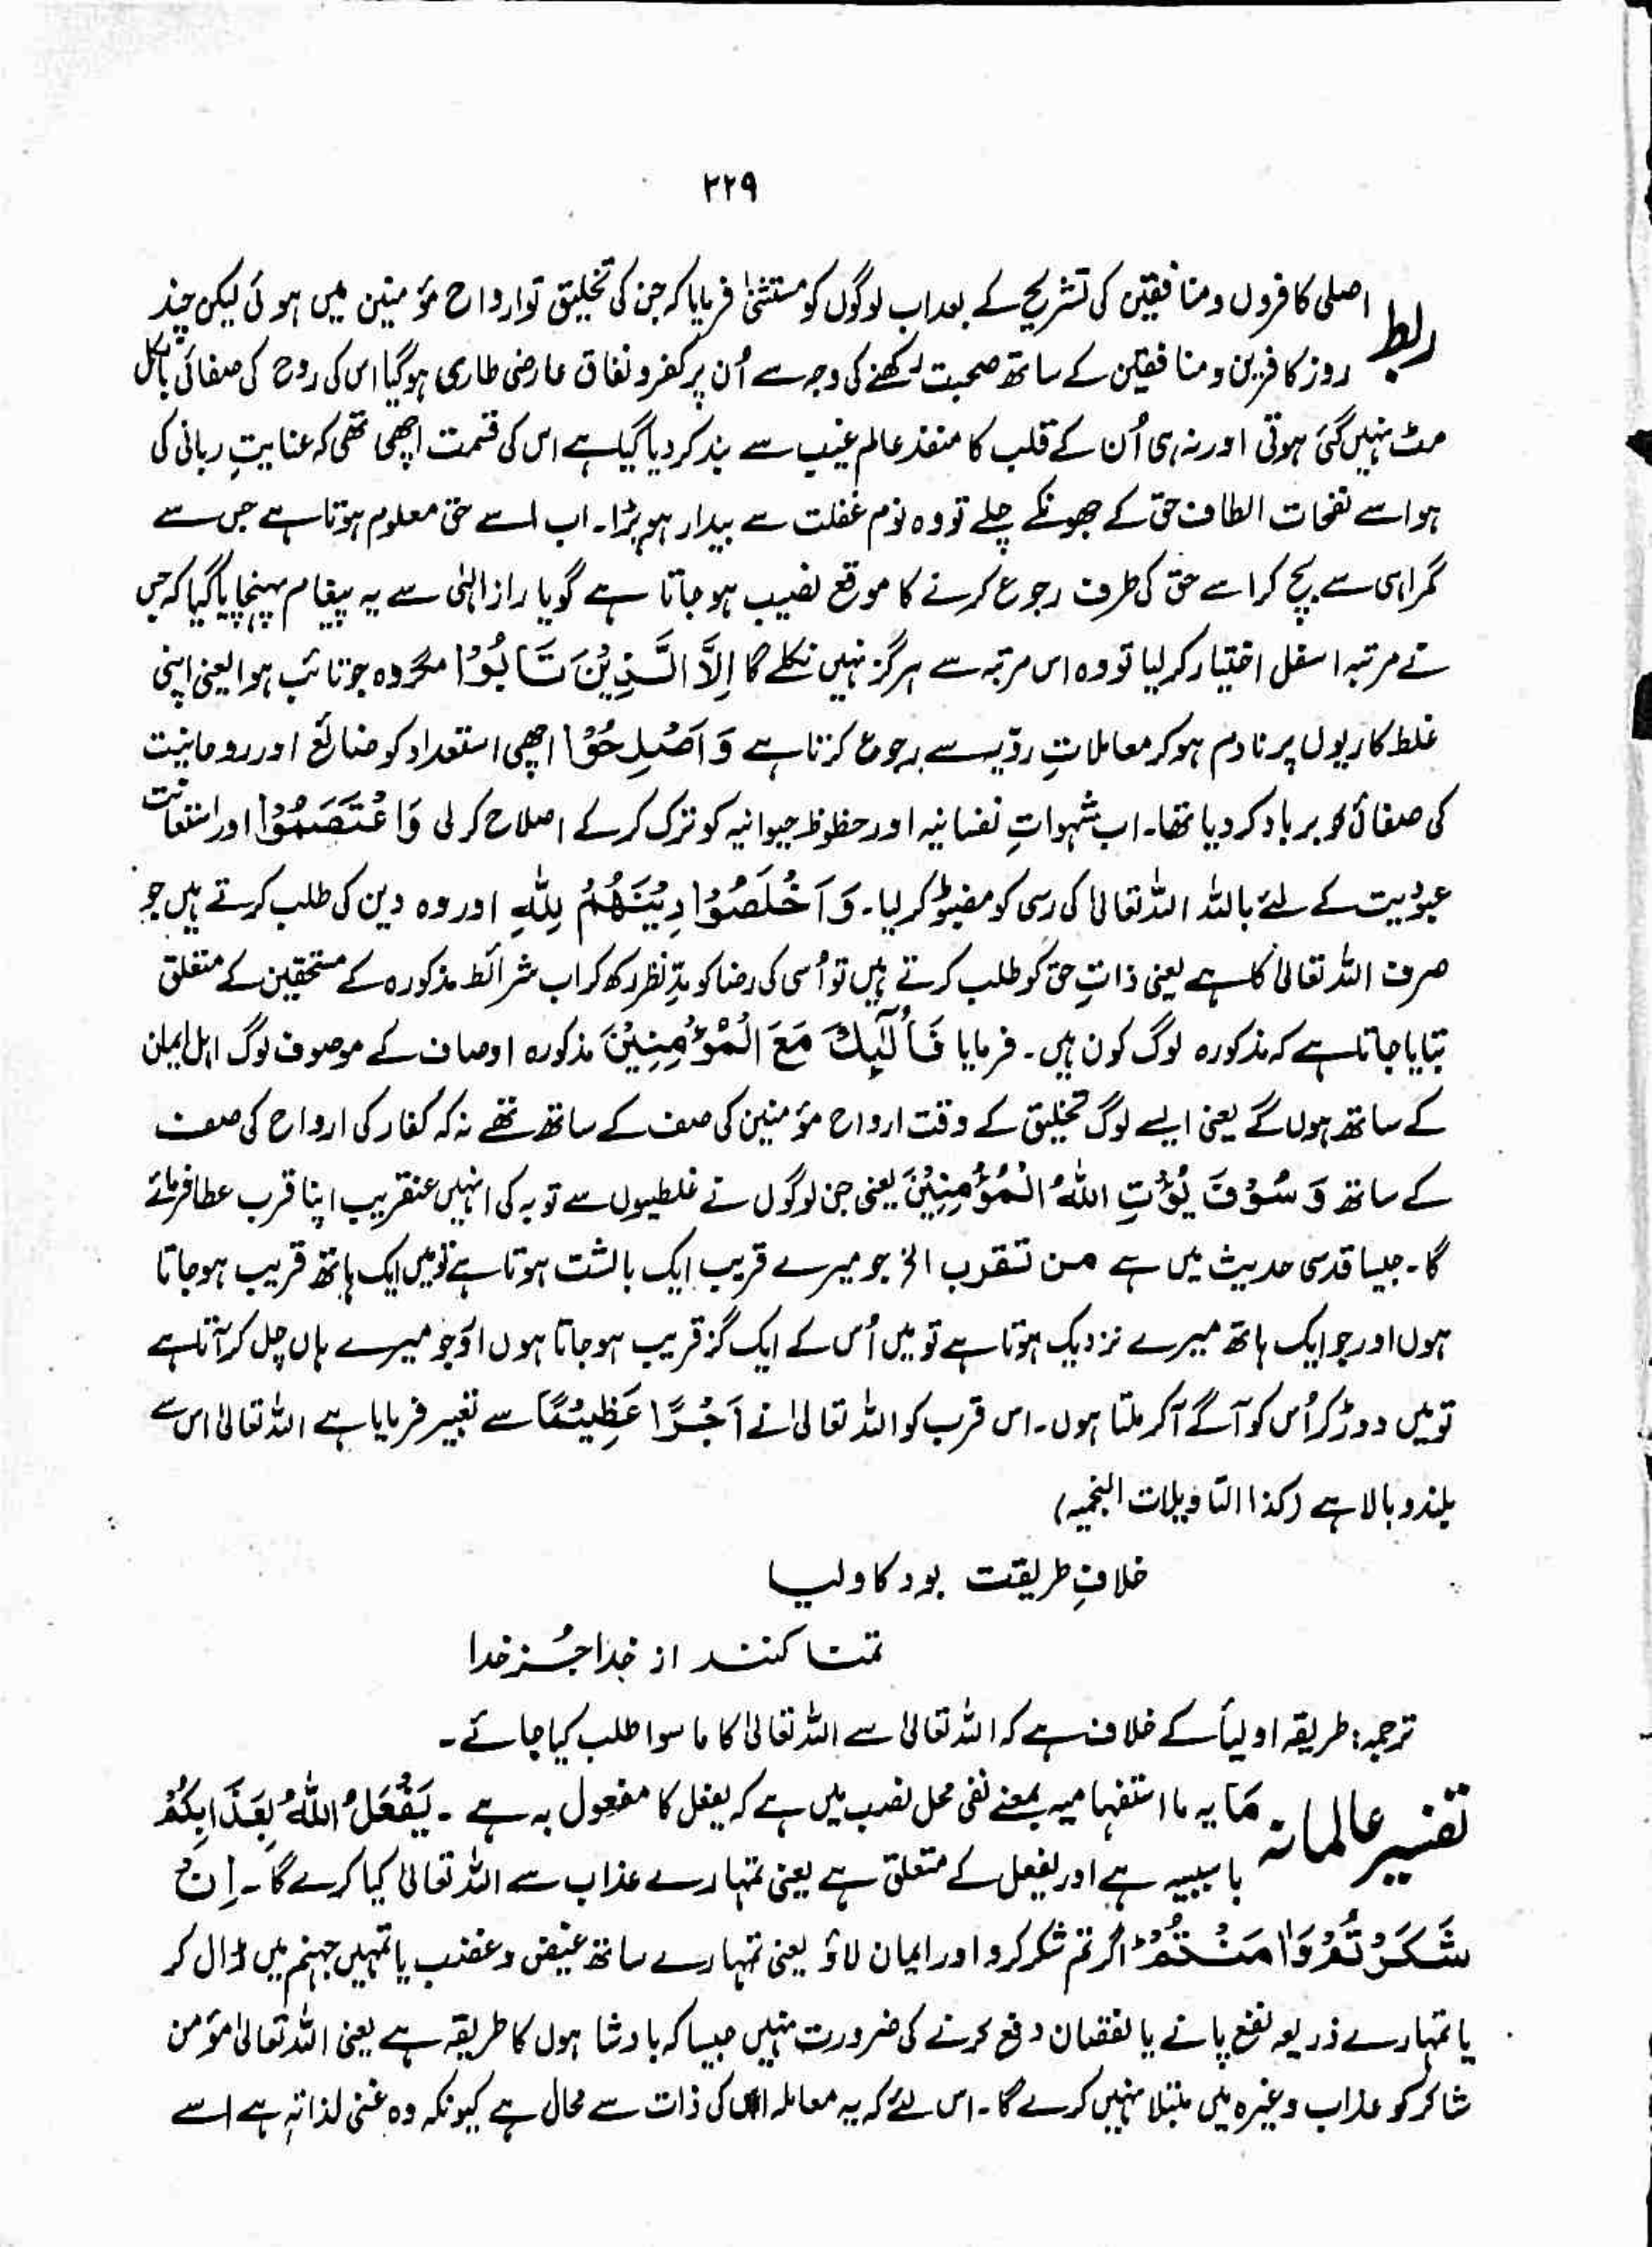 ۲۲۹
ربط
اصلی کافروں و منافقین کی تشریح کے بعد اب لوگوں کو مستثنیٰ فرمایا کہ جن کی تخلیق تو ارواح مؤمنین میں ہوئی لیکن چند
روز کافرین و منافقین کے ساتھ صحبت رکھنے کی وجہ سے اُن پر کفر و نفاق عارضی طاری ہوگیا اس کی روح کی صفائی بالکل
مٹ نہیں گئی ہوتی اور نہ ہی اُن کے قلب کا منفذ عالم غیب سے بند کر دیا گیا ہے اس کی قسمت اچھی تھی کہ عنایتِ ربانی کی
ہوا سے نفحات الطاف حق کے جھونکے چلے تو وہ نوم غفلت سے بیدار ہو پڑا۔ اب اسے حق معلوم ہوتا ہے جس سے
گمراہی سے بچ کر اسے حق کی طرف رجوع کرنے کا موقع نصیب ہو جاتا ہے گویا راز الٰہی سے یہ پیغام پہنچایا گیا کہ جس
نے مرتبہ اسفل اختیار کر لیا تو وہ اس مرتبہ سے ہرگز نہیں نکلے گا اِلَّا الَّذِیْنَ تَابُوْا مگر وہ جو تائب ہوا یعنی اپنی
غلط کاریوں پر نادم ہو کر معاملاتِ ردّیہ سے رجوع کرتا ہے وَ اَصْلِحُوْا اچھی استعداد کو ضائع اور روحانیت
کی صفائی کو برباد کر دیا تھا۔ اب شہواتِ نفسانیہ اور حظوظ حیوانیہ کو ترک کر کے اصلاح کر لی وَاعْتَصَمُوْا اور استعانت
عبودیت کے لئے باللہ اللہ تعالیٰ کی رسی کو مضبوط کر لیا۔ وَ اَخْلَصُوْا دِیْنَهُمْ لِلّٰهِ اور وہ دین کی طلب کرتے ہیں جو
صرف اللہ تعالیٰ کا ہے یعنی ذاتِ حق کو طلب کرتے ہیں تو اُسی کی رضا کو مدِّنظر رکھ کر اب شرائط مذکورہ کے مستحقین کے متعلق
بتایا جاتا ہے کہ مذکورہ لوگ کون ہیں۔ فرمایا فَاُولٰٓئِكَ مَعَ الْمُؤْمِنِیْنَ مذکورہ اوصاف کے موصوف لوگ اہل ایمان
کے ساتھ ہوں گے یعنی ایسے لوگ تخلیق کے وقت ارواح مؤمنین کی صف کے ساتھ تھے نہ کہ کفار کی ارواح کی صف
کے ساتھ وَ سَوْفَ یُؤْتِ اللّٰهُ الْمُؤْمِنِیْنَ یعنی جن لوگوں نے غلطیوں سے توبہ کی انہیں عنقریب اپنا قرب عطا فرمائے
گا۔ جیسا قدسی حدیث میں ہے من تقرب الخ جو میرے قریب ایک بالشت ہوتا ہے تو میں ایک ہاتھ قریب ہو جاتا
ہوں اور جو ایک ہاتھ میرے نزدیک ہوتا ہے تو میں اُس کے ایک گز قریب ہو جاتا ہوں اور جو میرے ہاں چل کر آتا ہے
تو میں دوڑ کر اُس کو آگے آ کر ملتا ہوں۔ اس قرب کو اللہ تعالیٰ نے اَجْرًا عَظِیْمًا سے تعبیر فرمایا ہے اللہ تعالیٰ اس سے
بلند و بالا ہے (کذا التاویلات النجمیہ)
خلافِ طریقت بود کاولیا
تمنا کنند از خدا جُز خدا
ترجمہ: طریقہ اولیأ کے خلاف ہے کہ اللہ تعالیٰ سے اللہ تعالیٰ کا ماسوا طلب کیا جائے۔
تفسیر عالمانہ
مَا یہ ما استفہامیہ بمعنے نفی محل نصب میں ہے کہ یفعل کا مفعول بہ ہے۔ یَفْعَلُ اللّٰهُ بِعَذَابِكُمْ
با سببیہ ہے اور یفعل کے متعلق ہے یعنی تمہارے عذاب سے اللہ تعالیٰ کیا کرے گا۔ اِنْ
شَكَرْتُمْ وَاٰمَنْتُمْ اگر تم شکر کرو اور ایمان لاؤ یعنی تمہارے ساتھ غیض و غضب یا تمہیں جہنم میں ڈال کر
یا تمہارے ذریعہ نفع پانے یا نقصان دفع کرنے کی ضرورت نہیں جیسا کہ بادشاہوں کا طریقہ ہے یعنی اللہ تعالیٰ مؤمن
شاکر کو عذاب وغیرہ میں مبتلا نہیں کرے گا۔ اس لئے کہ یہ معاملہ اس کی ذات سے محال ہے کیونکہ وہ غنی لذاتہٖ ہے اسے